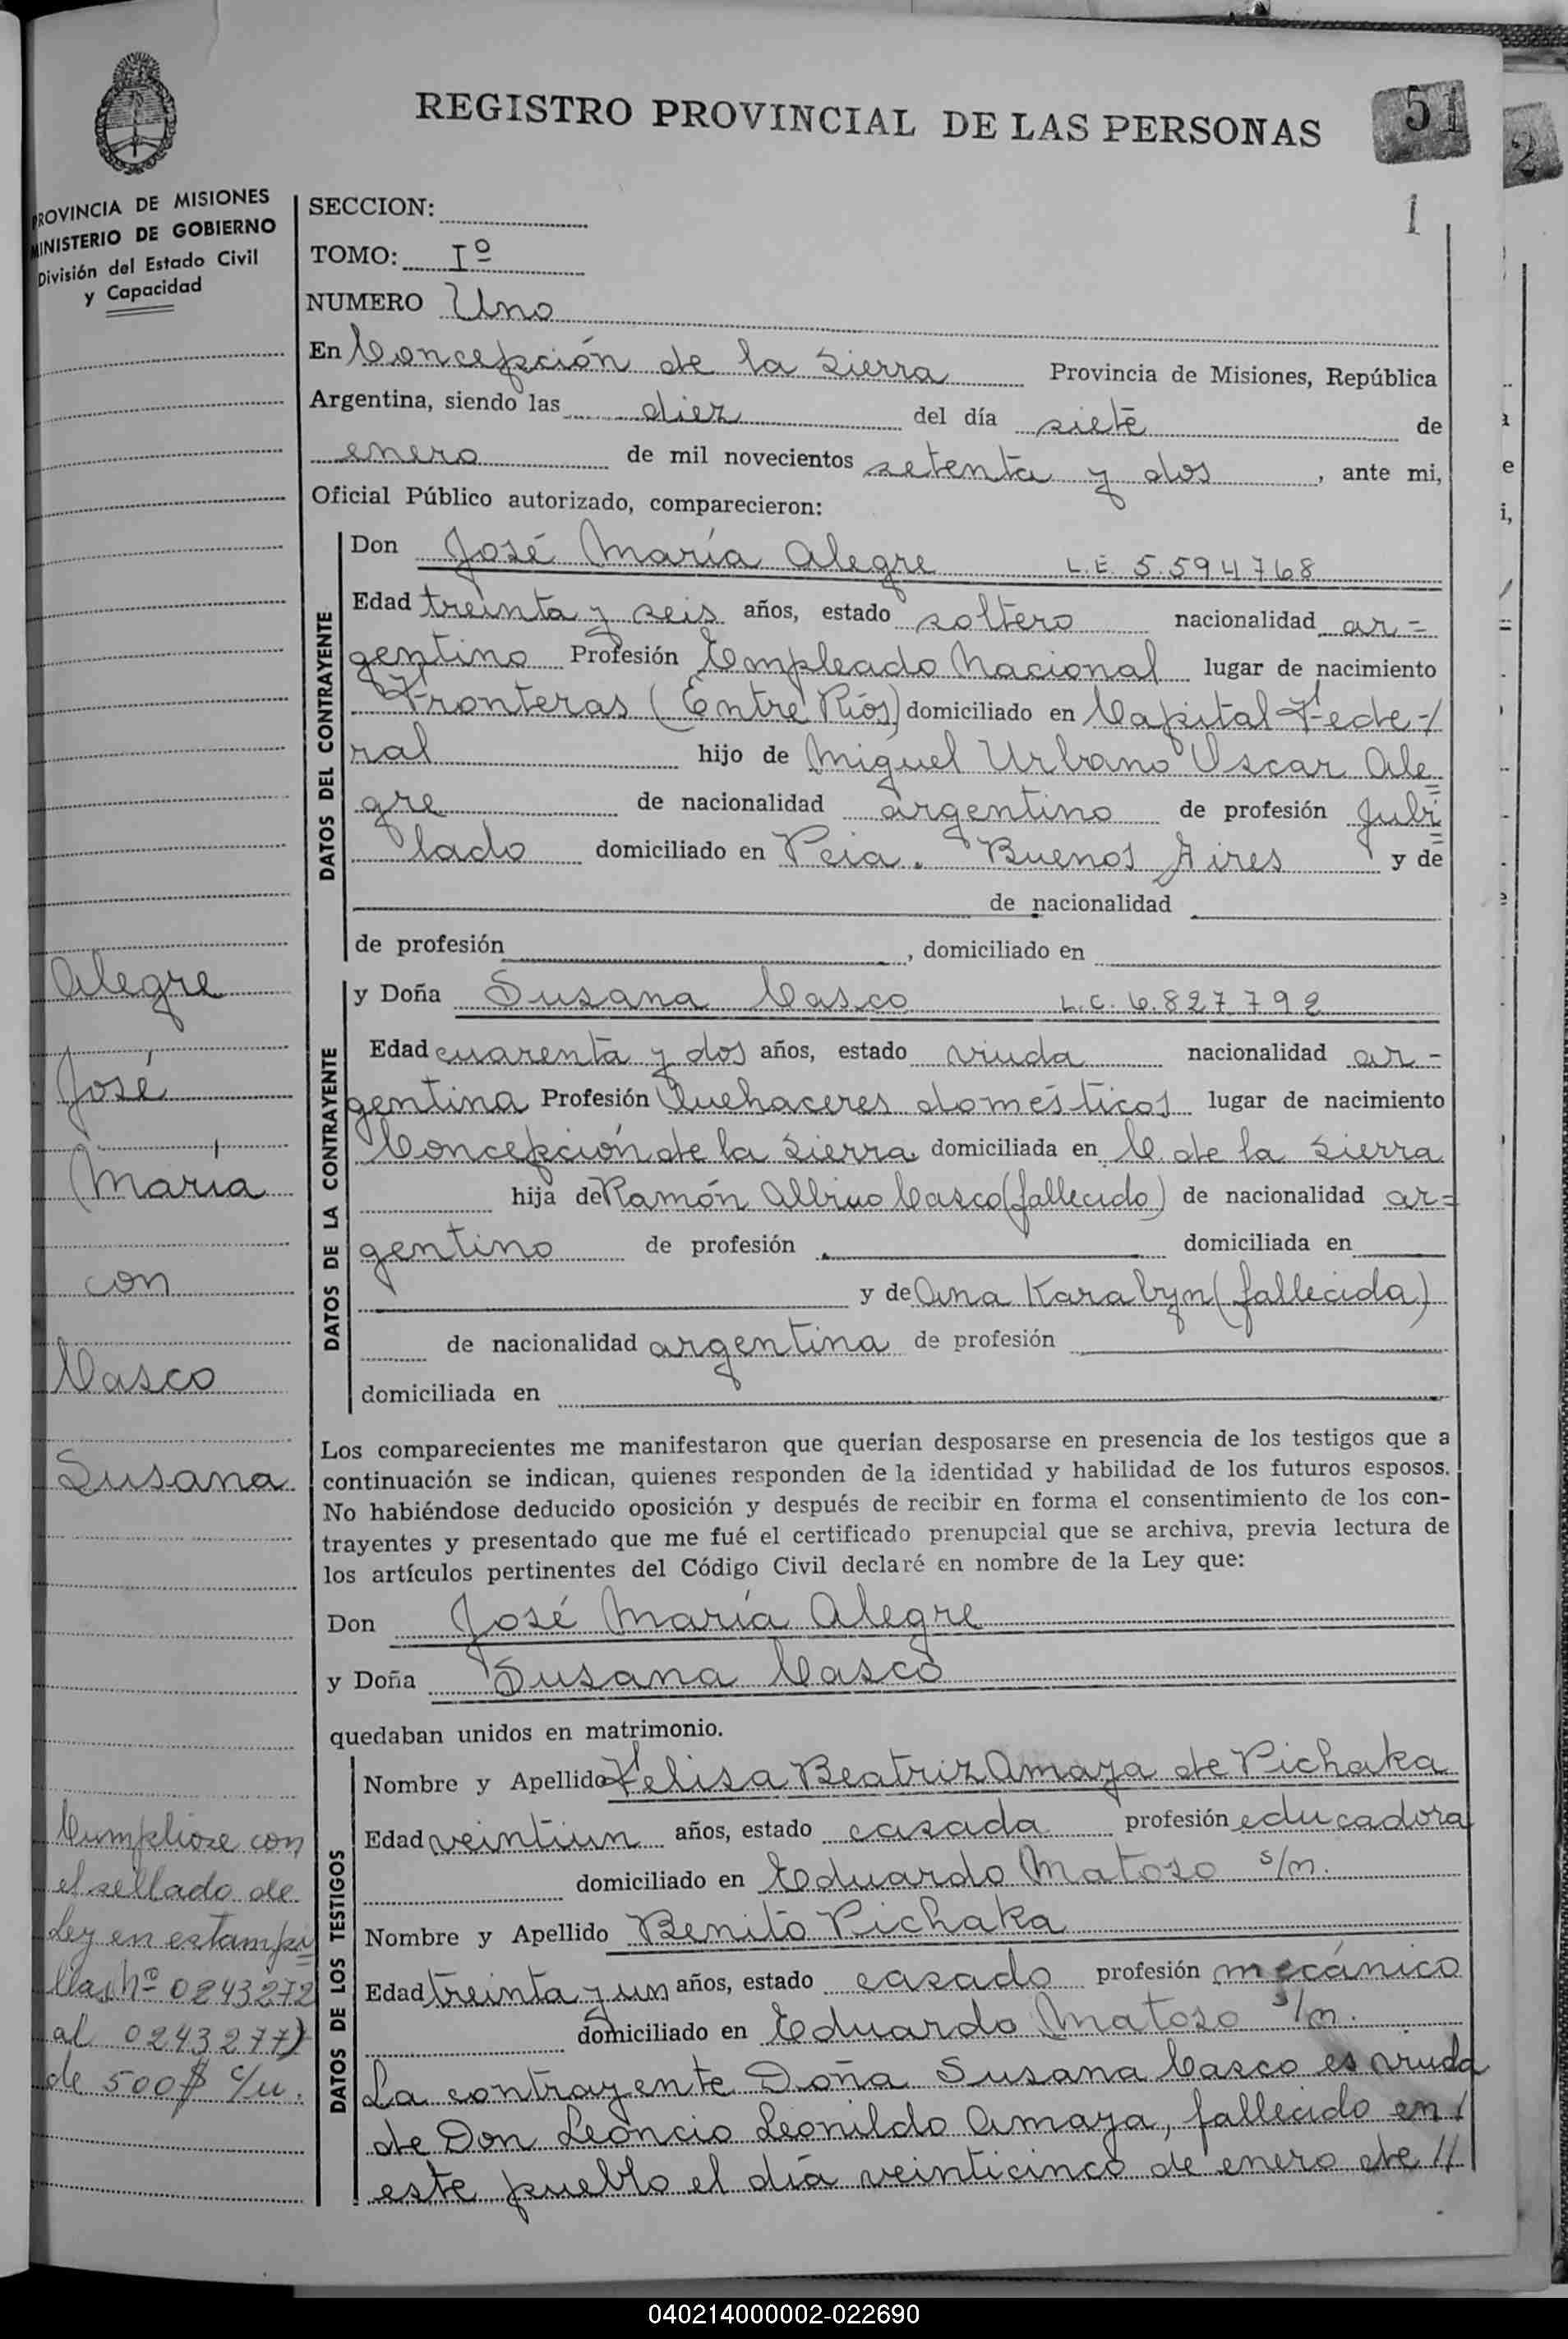 REGISTRO PROVINCIAL DE LAS PERSONAS
51
2
1
PROVINCIA DE MISIONES
MINISTERIO DE GOBIERNO
División del Estado Civil
y Capacidad
SECCION:
TOMO: Iº
NUMERO Uno
En Concepción de la Sierra Provincia de Misiones, República
Argentina, siendo las diez del día siete de
enero de mil novecientos setenta y dos, ante mi,
Oficial Público autorizado, comparecieron:
DATOS DEL CONTRAYENTE
Don José María Alegre L.E. 5.594768
Edad treinta y seis años, estado soltero nacionalidad ar=
gentino Profesión Empleado Nacional lugar de nacimiento
Fronteras (Entre Ríos) domiciliado en Capital Fede-/
ral hijo de Miguel Urbano Oscar Ale
gre de nacionalidad argentino de profesión Jubi
lado domiciliado en Pcia. Buenos Aires y de
de nacionalidad
de profesión , domiciliado en
DATOS DE LA CONTRAYENTE
y Doña Susana Casco L.C. 6.827792
Edad cuarenta y dos años, estado viuda nacionalidad ar-
gentina Profesión Quehaceres domésticos lugar de nacimiento
Concepción de la Sierra domiciliada en C. de la Sierra
hija de Ramón Albino Casco (fallecido) de nacionalidad ar=
gentino de profesión domiciliada en
y de Ana Karabyn (fallecida)
de nacionalidad argentina de profesión
domiciliada en
Los comparecientes me manifestaron que querían desposarse en presencia de los testigos que a
continuación se indican, quienes responden de la identidad y habilidad de los futuros esposos.
No habiéndose deducido oposición y después de recibir en forma el consentimiento de los con-
trayentes y presentado que me fué el certificado prenupcial que se archiva, previa lectura de
los artículos pertinentes del Código Civil declaré en nombre de la Ley que:
Don José María Alegre
y Doña Susana Casco
quedaban unidos en matrimonio.
DATOS DE LOS TESTIGOS
Nombre y Apellido Felisa Beatriz Amaya de Pichaka
Edad veintiun años, estado casada profesión educadora
domiciliado en Eduardo Matoso s/n.
Nombre y Apellido Benito Pichaka
Edad treinta y un años, estado casado profesión mecánico
domiciliado en Eduardo Matoso s/n.
La contrayente Doña Susana Casco es viuda
de Don Leoncio Leonildo Amaya, fallecido en /
este pueblo el día veinticinco de enero de //
Alegre
José
María
con
Casco
Susana
Cumpliose con
el sellado de
Ley en estampi
llas Nº 0243272
al 0243277)
de 500$ c/u.
040214000002-022690